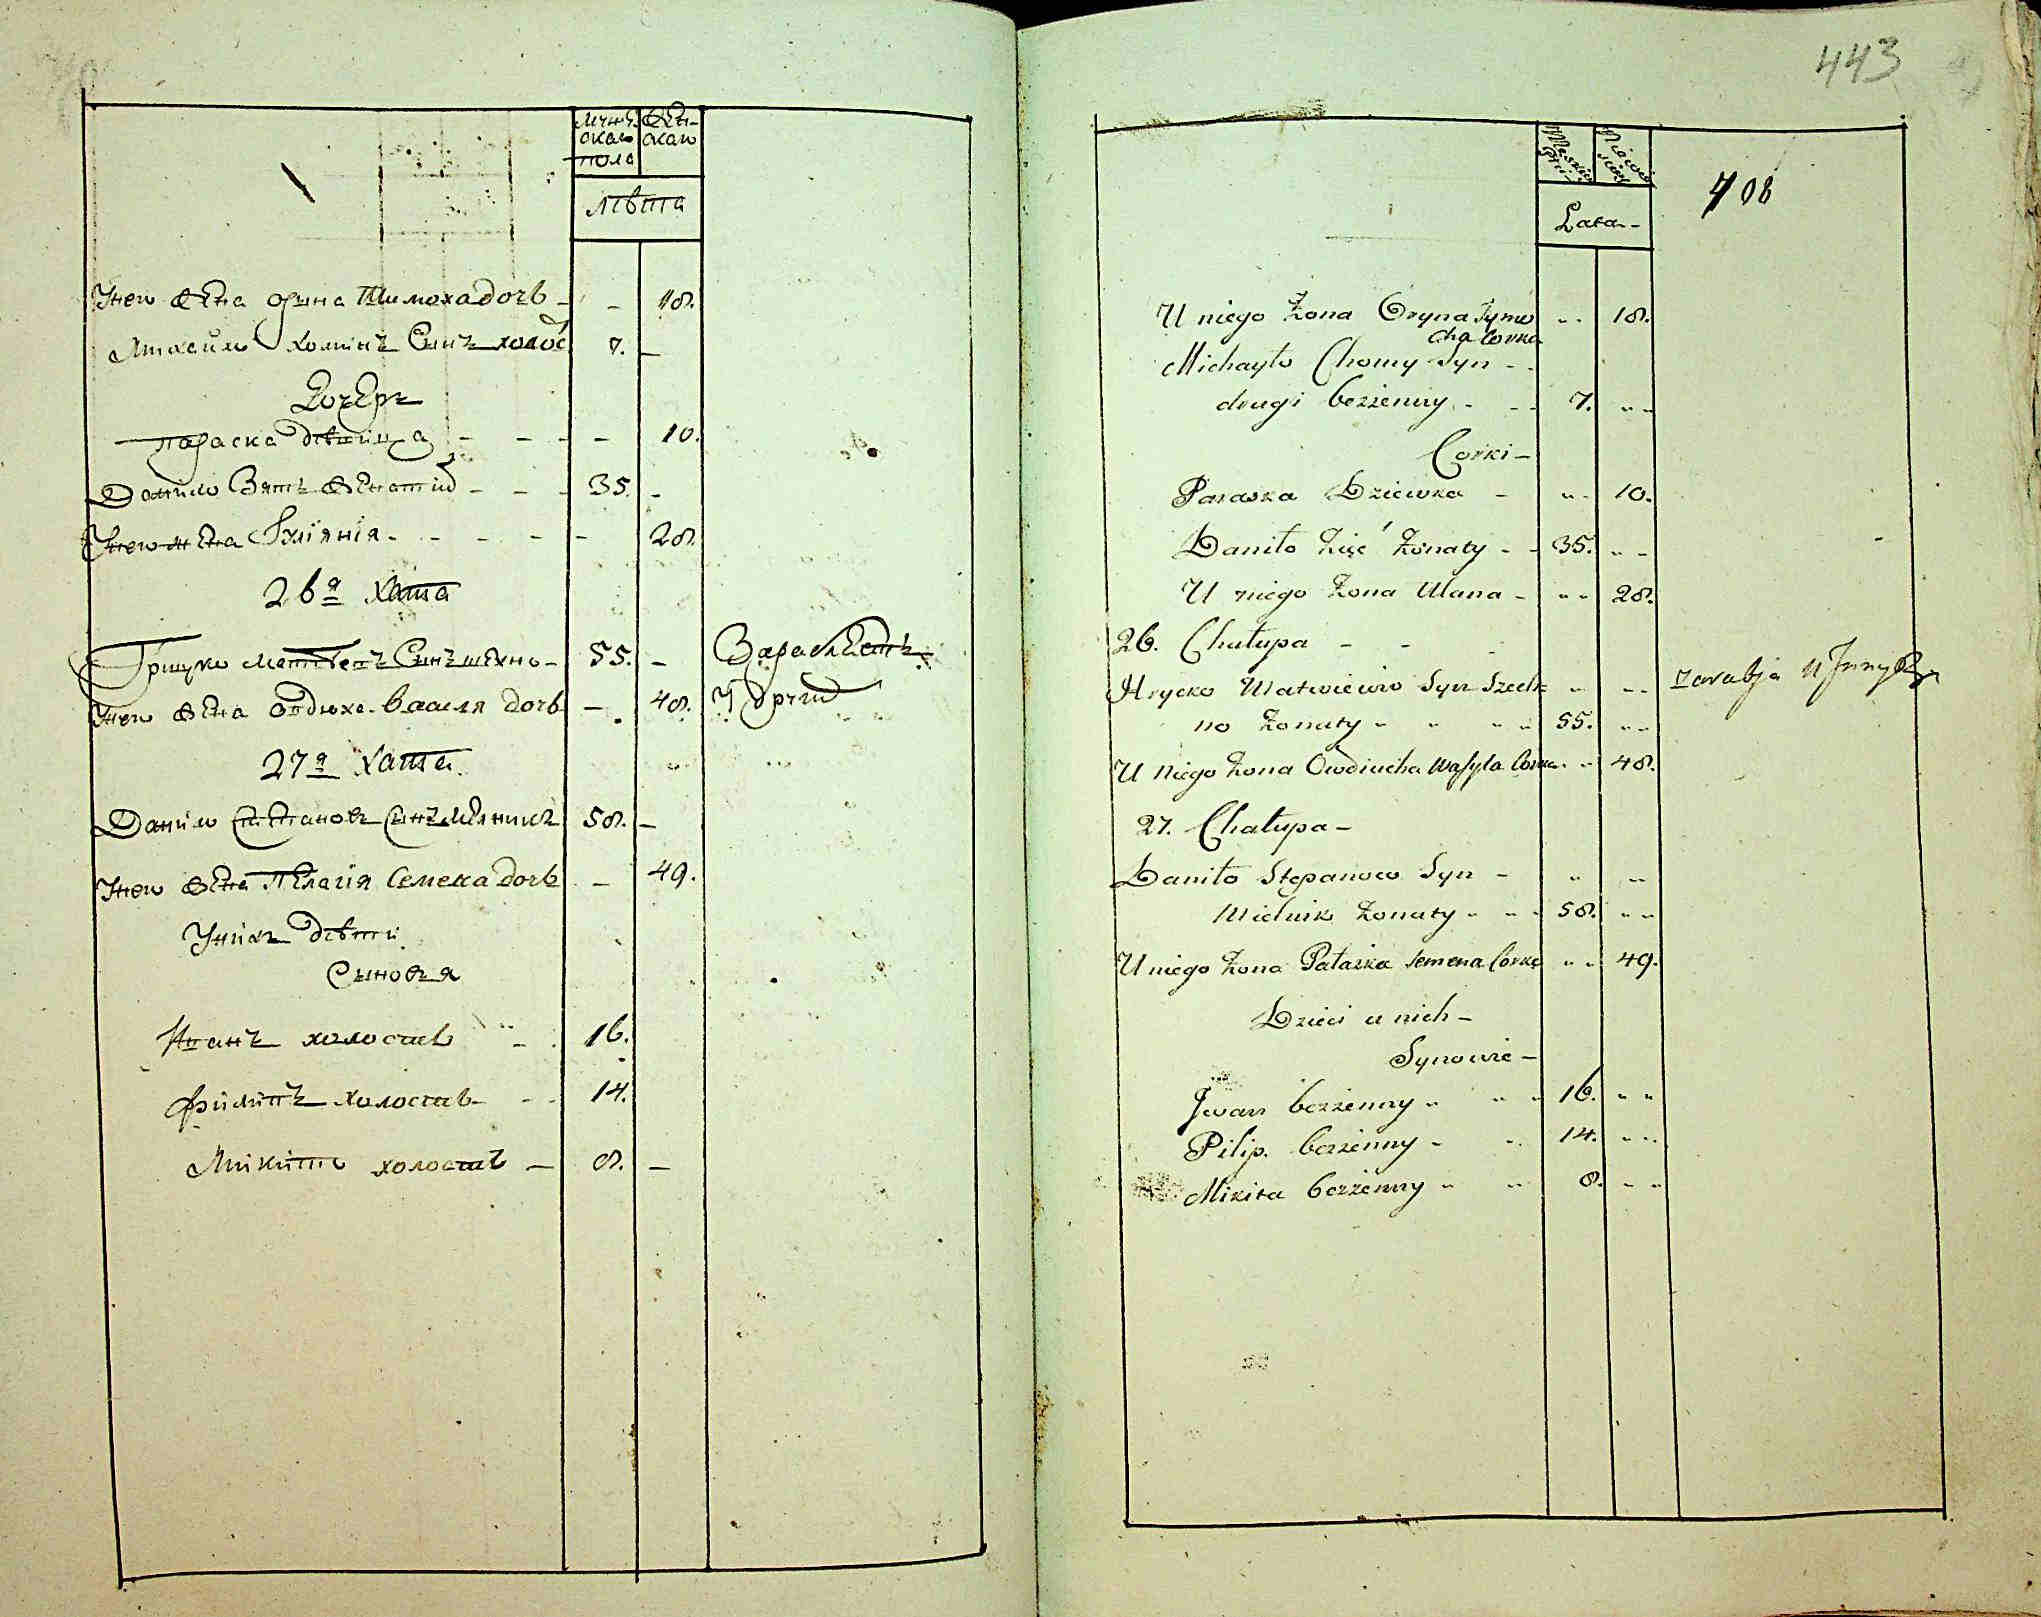 мужскаго пола
женскаго
лѣта
У него жена орина Тимоха дочь - - 18.
Михаило хомінъ Сынъ холос 7. -
Дочерь
параска дѣвица - - - - 10.
Данило Зять женатий - - - 35. -
У него жена Уліянія - - - - - 28.
26я хата
Грицко матвеевъ Сынъ шехно - 55. - Зарабляетъ
У него жена Овдюха Василя дочь - 48. У
27я хата
Данило Степановъ Сынъ Мелникъ 58. -
У него жена Пелагія Семена дочь - 49.
У нихъ дѣти
Сыновья
Иванъ холостъ - 16.
филипъ холостъ - - 14.
Микита холостъ - 8. -
443
Męzkiey płci
Lata -
708
U niego Żona Oryna Tymo 18.
cha Corka
Michayło Chomy Syn - -
drugi bezżenny - - - 7.
Corki -
Paraska Dziewka - 10.
Daniło Zięć Żonaty - - 35.
U niego Żona Ulana - 28.
26. Chałupa - - -
Hrycko Matwieiow Syn Szech zarabja u
no Żonaty 55.
U Niego Żona Owdiucha Wasyla Corka 48.
27. Chałupa -
Daniło Stepanow Syn -
Mielnik Żonaty 58.
U niego Żona Pałaska Semena Corka 49.
Dzieci u nich -
Synowie -
Jwan bezżenny 16.
Pilip. bezżenny - 14.
Mikita bezżenny 8.